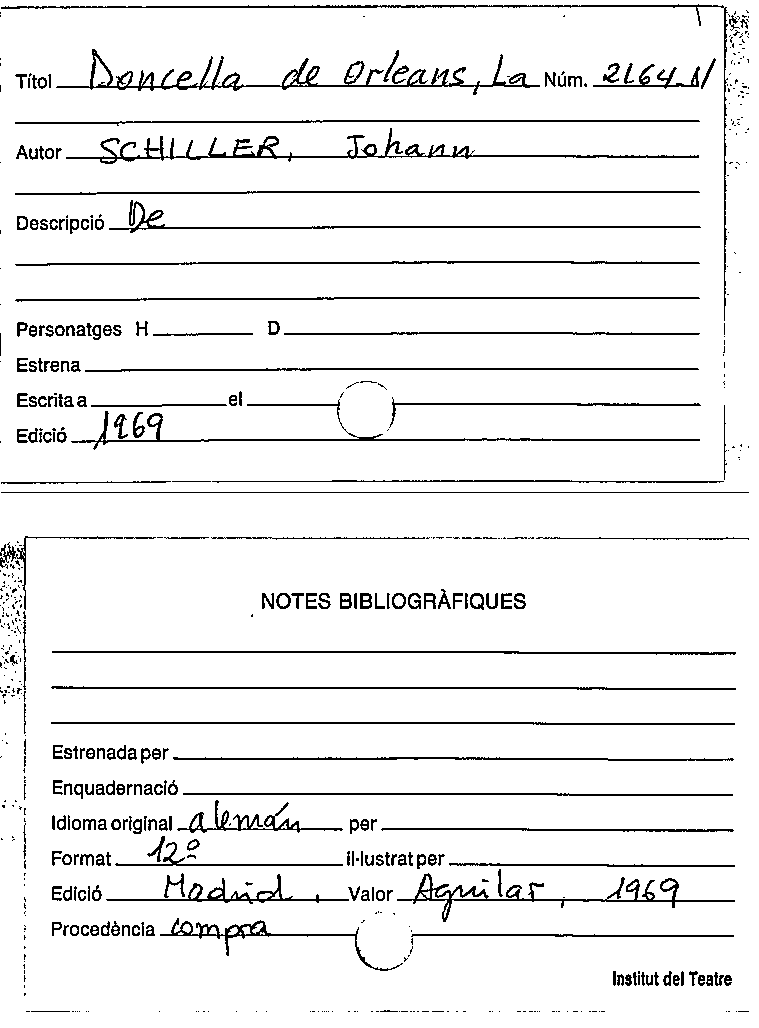 Títol Doncella de Orleans, La Núm. 2164-N
Autor SCHILLER, Johann
Descripció De
Personatges H D
Estrena
Escrita a el
Edició 1969
NOTES BIBLIOGRÀFIQUES
Estrenada per
Enquadernació
Idioma original alemán per
Format 12º il·lustrat per
Edició Madrid, Valor Aguilar, 1969
Procedència compra
Institut del Teatre